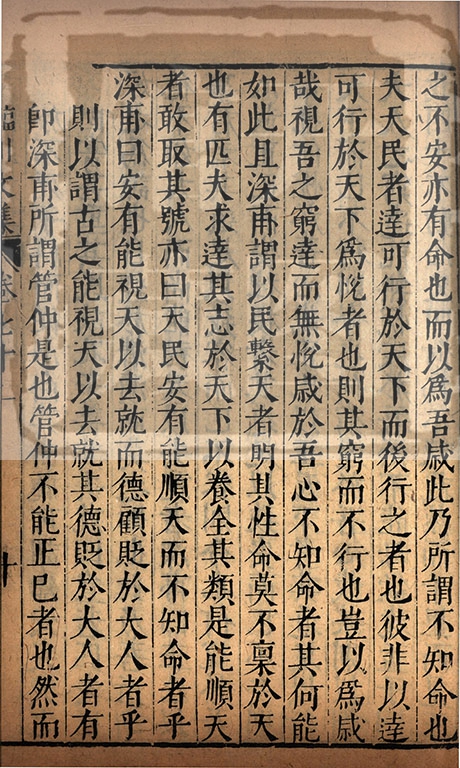 之不安亦有命也而以爲吾戚此乃所謂不知命也
夫天民者達可行於天下而後行之者也彼非以達
可行於天下爲恱者也則其窮而不行也豈以爲戚
哉視吾之窮達而無恱戚於吾心不知命者其何能
如此且深甫謂以民繫天者明其性命莫不禀於天
也有匹夫求達其志於天下以養全其類是能順天
者敢取其號亦曰天民安有能順天而不知命者乎
深甫曰安有能視天以去就而德顧貶於大人者乎
則以謂古之能視天以去就其德貶於大人者有
卽深甫所謂管仲是也管仲不能正已者也然而
臨川文集
卷七十二
十